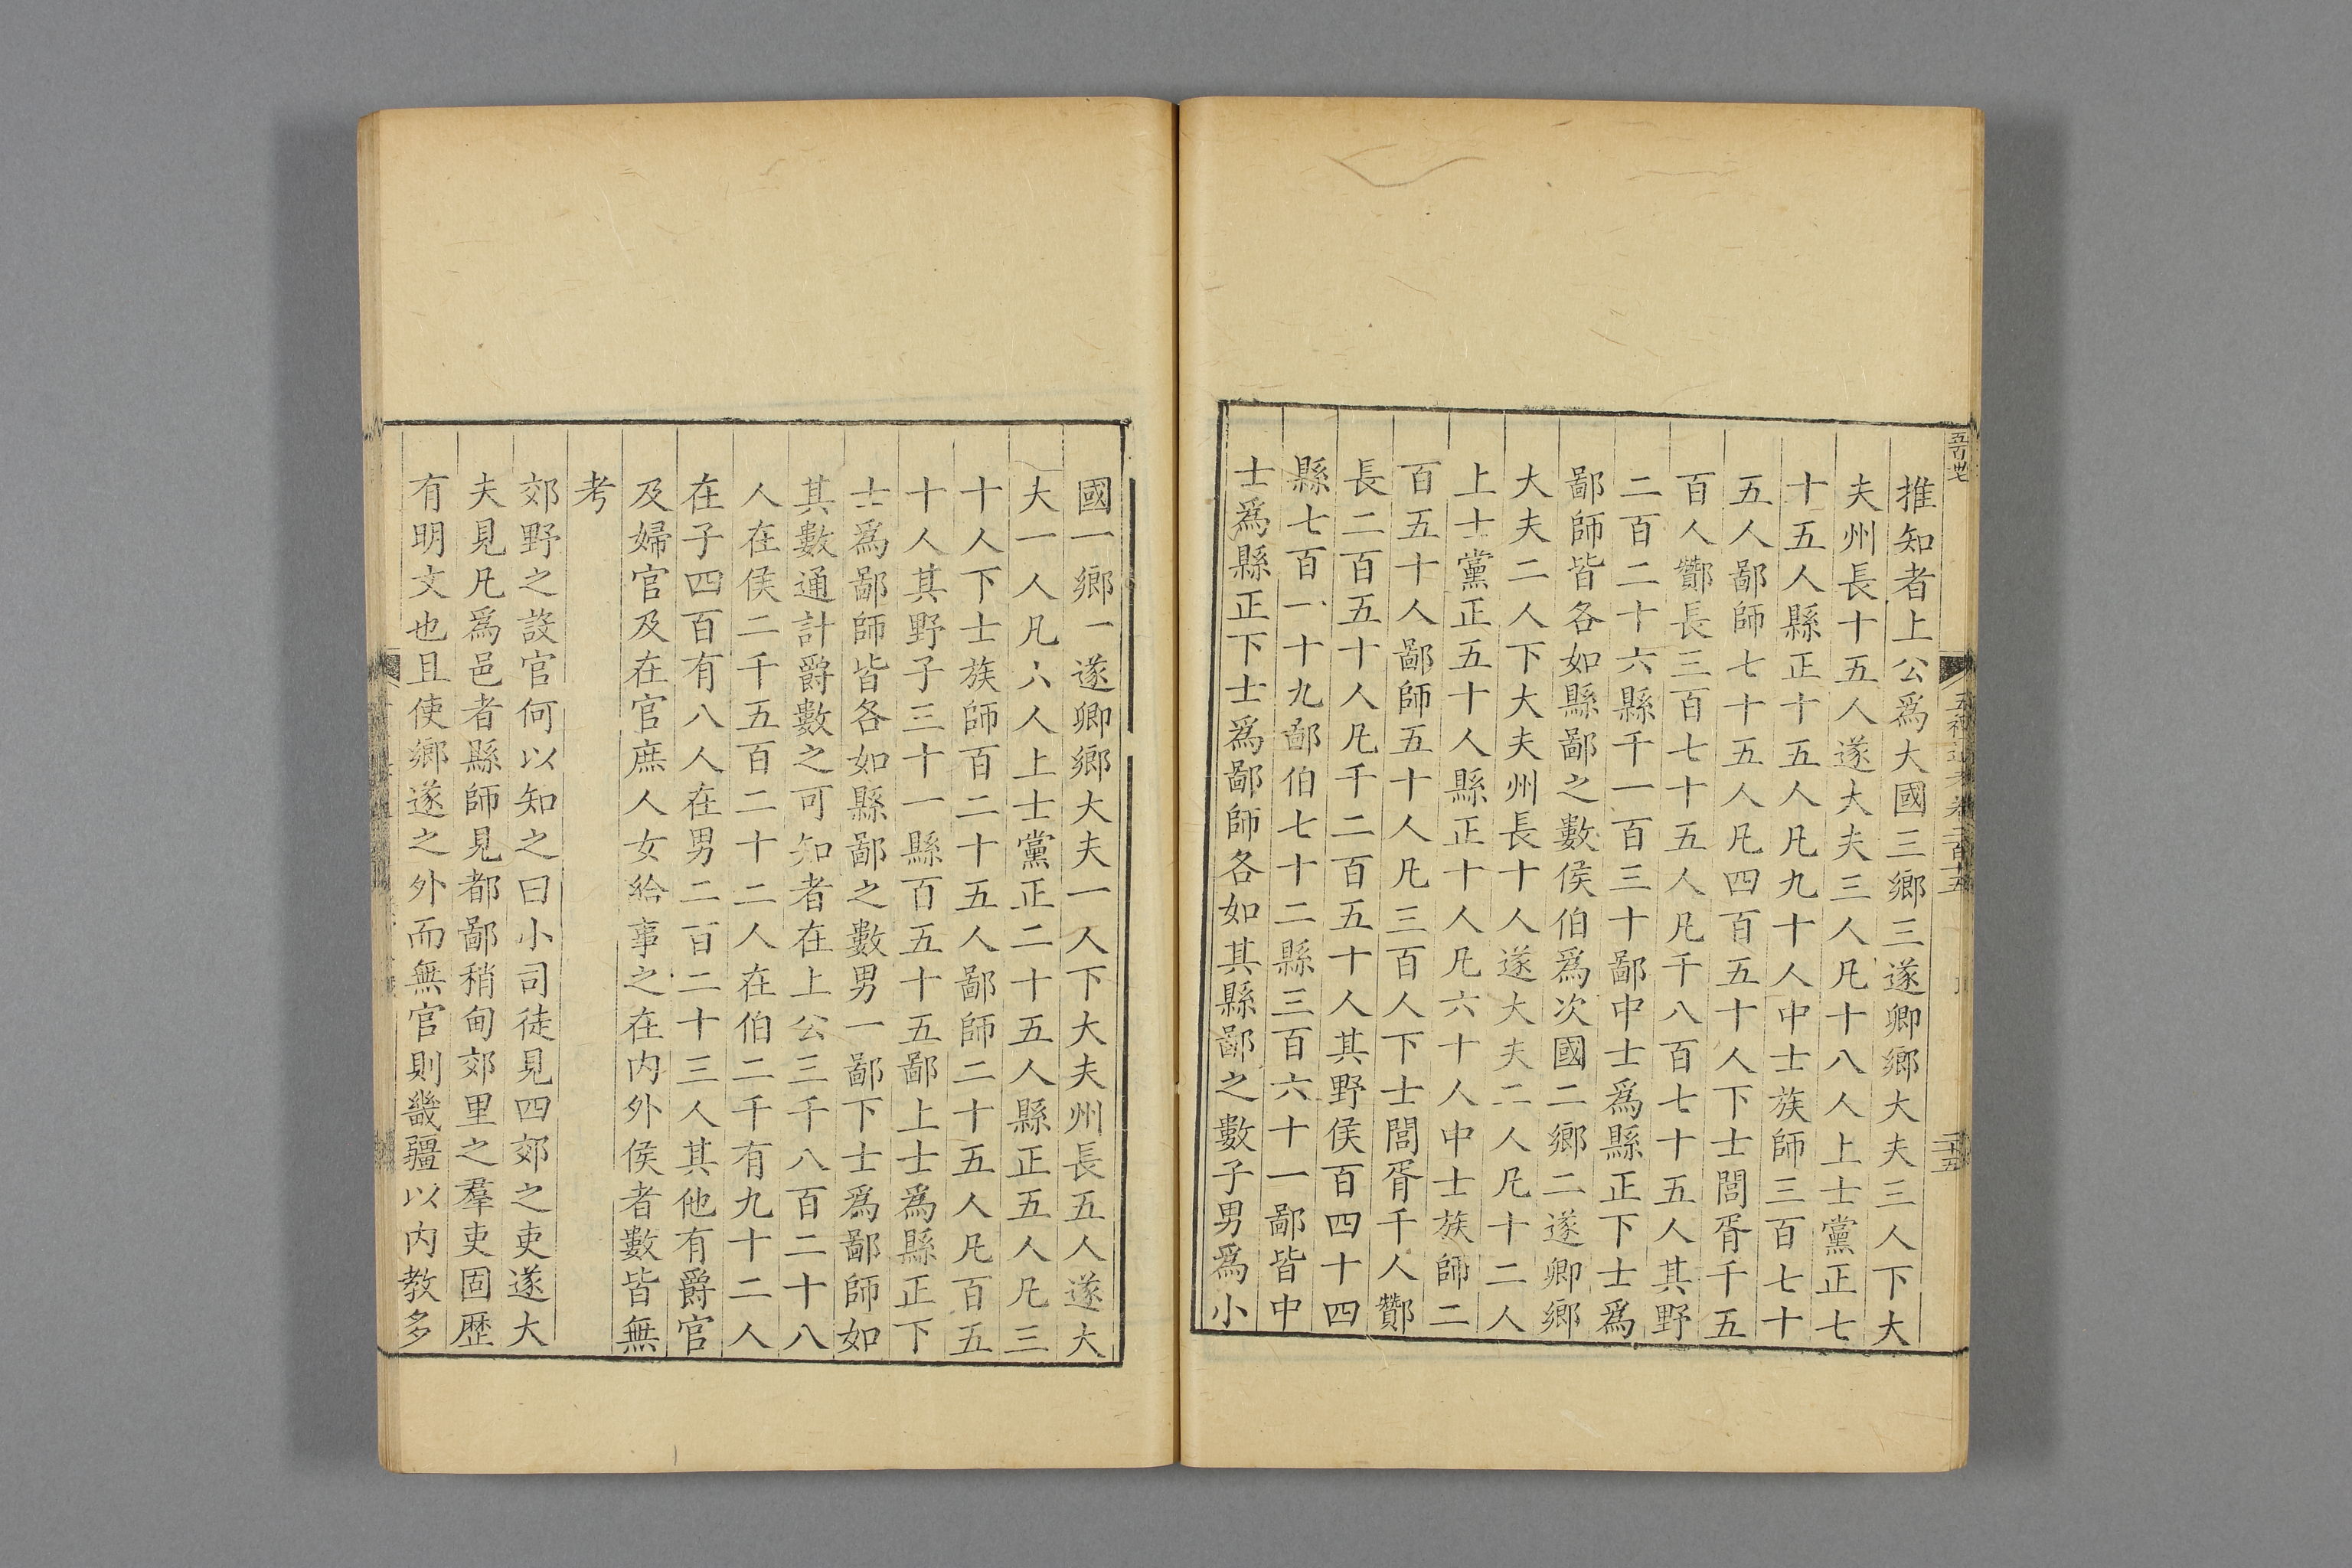 推知者上公爲大國三鄉三遂卿鄉大夫三人下大
夫州長十五人遂大夫三人凡十八人上士黨正七
十五人縣正十五人凡九十人中士族師三百七十
五人鄙師七十五人凡四百五十人下士閭胥千五
百人酇長三百七十五人凡千八百七十五人其野
二百二十六縣千一百三十鄙中士爲縣正下士爲
鄙師皆各如縣鄙之數侯伯爲次國二鄉二遂卿鄉
大夫二人下大夫州長十人遂大夫二人凡十二人
上士黨正五十人縣正十人凡六十人中士族師二
百五十人鄙師五十人凡三百人下士閭胥千人酇
長二百五十人凡千二百五十人其野侯百四十四
縣七百一十九鄙伯七十二縣三百六十一鄙皆中
士爲縣正下士爲鄙師各如其縣鄙之數子男爲小
國一鄉一遂卿鄉大夫一人下大夫州長五人遂大
大一人凡六人上士黨正二十五人縣正五人凡三
十人下士族師百二十五人鄙師二十五人凡百五
十人其野子三十一縣百五十五鄙上士爲縣正下
士爲鄙師皆各如縣鄙之數男一鄙下士爲鄙師如
其數通計爵數之可知者在上公三千八百二十八
人在侯二千五百二十二人在伯二千有九十二人
在子四百有八人在男二百二十三人其他有爵官
及婦官及在官庶人女給事之在内外侯者數皆無
考
郊野之設官何以知之曰小司徒見四郊之吏遂大
夫見凡爲邑者縣師見都鄙稍甸郊里之羣吏固歴
有明文也且使鄉遂之外而無官則畿疆以内教多